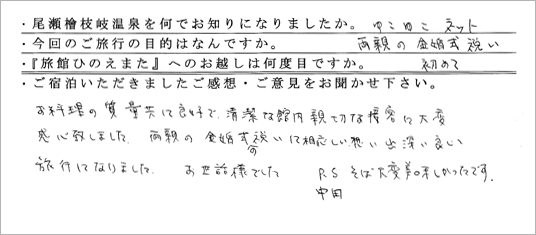 ・尾瀬檜枝岐温泉を何でお知りになりましたか。 ゆこゆこ ネット
・今回のご旅行の目的はなんですか。 両親の金婚式祝い
・『旅館ひのえまた』へのお越しは何度目ですか。 初めて
・ご宿泊いただきましたご感想・ご意見をお聞かせ下さい。
お料理の質量共に良好で、清潔な館内親切な接客に大変
感心致しました。両親の金婚式祝いに相応しい想い出深い良い
の
旅行になりました。 お世話様でした P.S そば大変美味しかったです。
中田